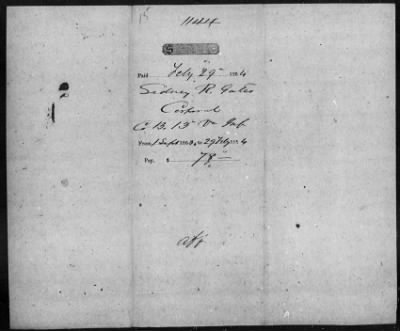 15
1144
Paid Feby 29" 1864
Sidney R. Gates
Corporal
Co B. 15" Va Inf
From 1 Sept 1863, to 29 Feby 1864
Pay, $ 78 —